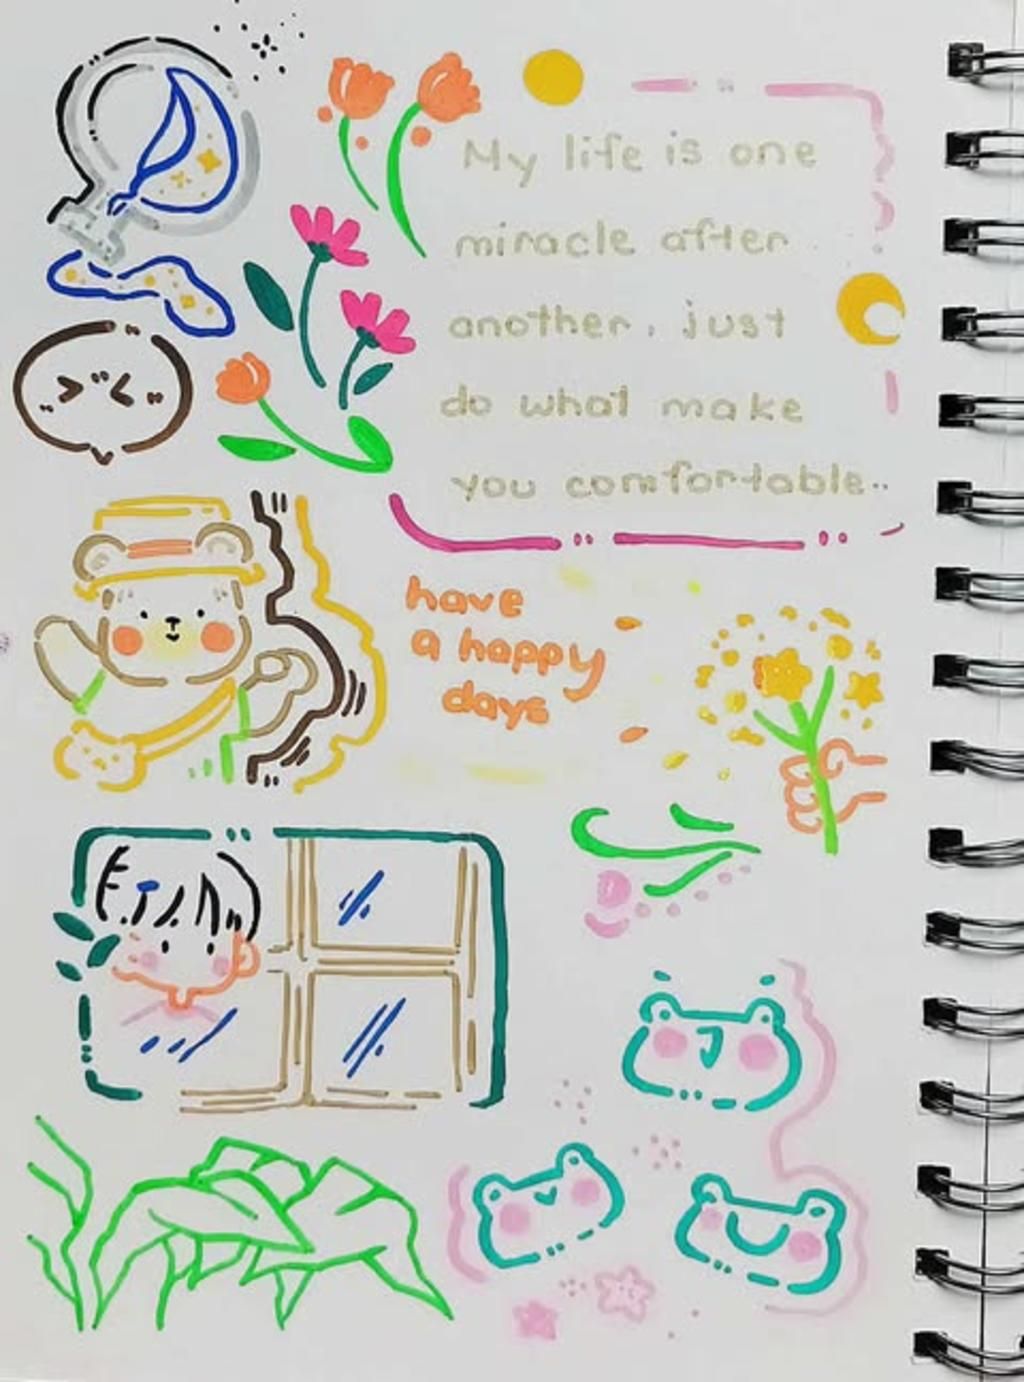 My life is one
miracle after
another. just
do what make
you comfortable..
have
a happy
days